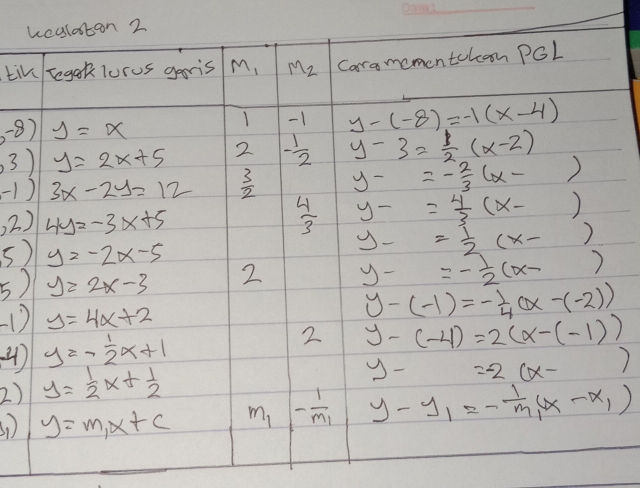 kegiatan 2
tik Tegak lurus garis M₁ M₂ Cara menentukan PGL
,-8) y = x 1 -1 y-(-8)=-1(x-4)
,3) y= 2x+5 2 -1/2 y-3= 1/2 (x-2)
-1) 3x-2y=12 3/2 y- =-2/3 (x- )
,2) 4y=-3x+5 4/3 y- =4/3 (x- )
,5) y=-2x-5 y- =1/2 (x- )
5) y=2x-3 2 y- =-1/2(x- )
-1) y=4x+2 y-(-1)=-1/4(x-(-2))
-4) y=-1/2x+1 2 y-(-4)=2(x-(-1))
2) y=1/2x+1/2 y- =-2 (x- )
y₁) y=m₁x+c m₁ -1/m₁ y-y₁=-1/m₁(x-x₁)